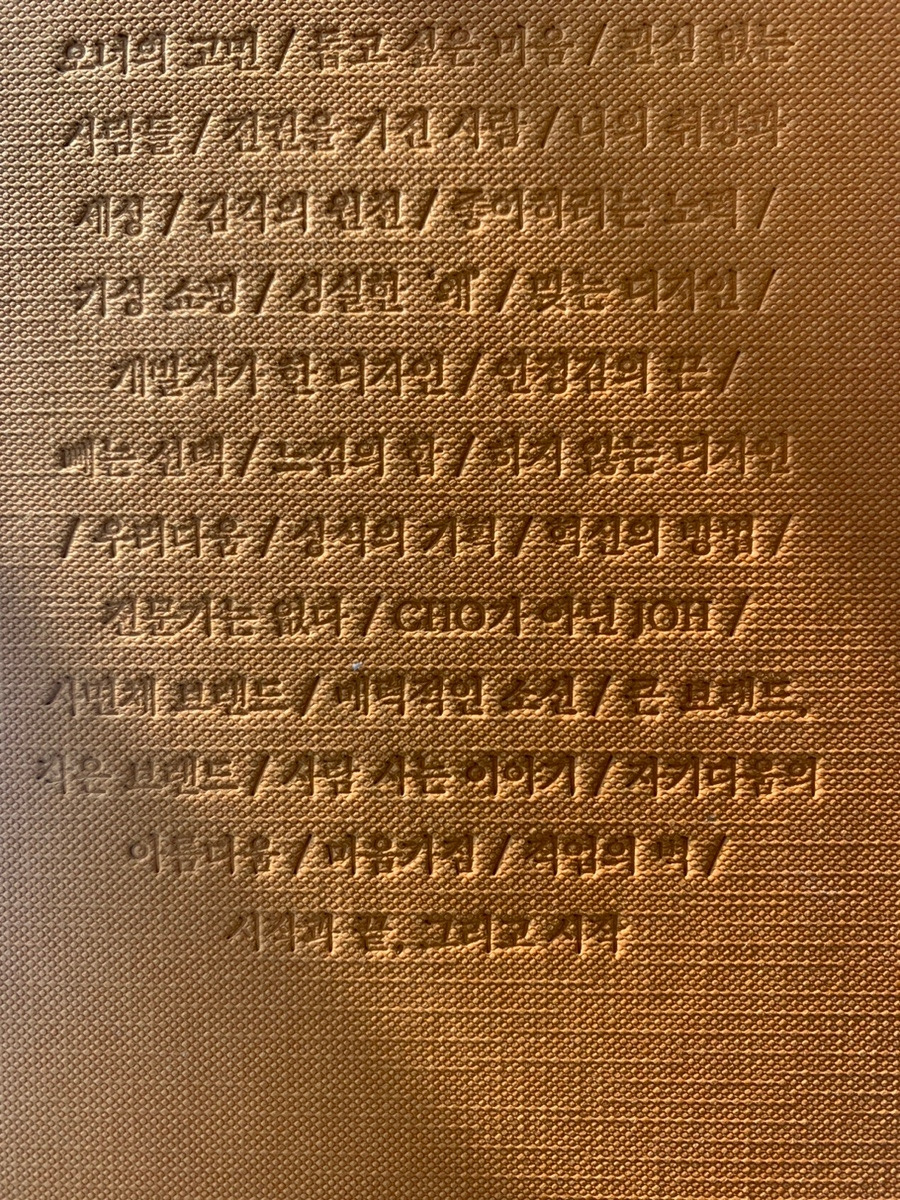 오너의 고민 / 돕고 싶은 마음 / 관심 없는
사람들 / 전권을 가진 사람 / 나의 취향과
재정 / 감각의 원천 / 좋아하려는 노력 /
가정 쇼핑 / 성실한 '왜' / 맞는 디자인 /
개발자가 한 디자인 / 안정감의 끈 /
빼는 선택 / 느낌의 힘 / 하지 않는 디자인
/ 우리다움 / 상식의 기획 / 혁신의 방법 /
전문가는 없다 / CHO가 아닌 JOH /
사면체 브랜드 / 매력적인 소신 / 큰 브랜드,
작은 브랜드 / 사람 사는 이야기 / 자기다움의
아름다움 / 마음가짐 / 직업의 맥 /
시작과 끝, 그리고 시작